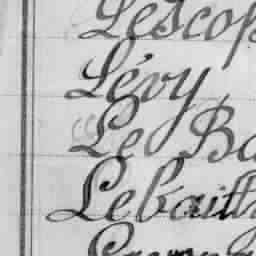 Lescop
Lévy
Le Ba
Lebailly